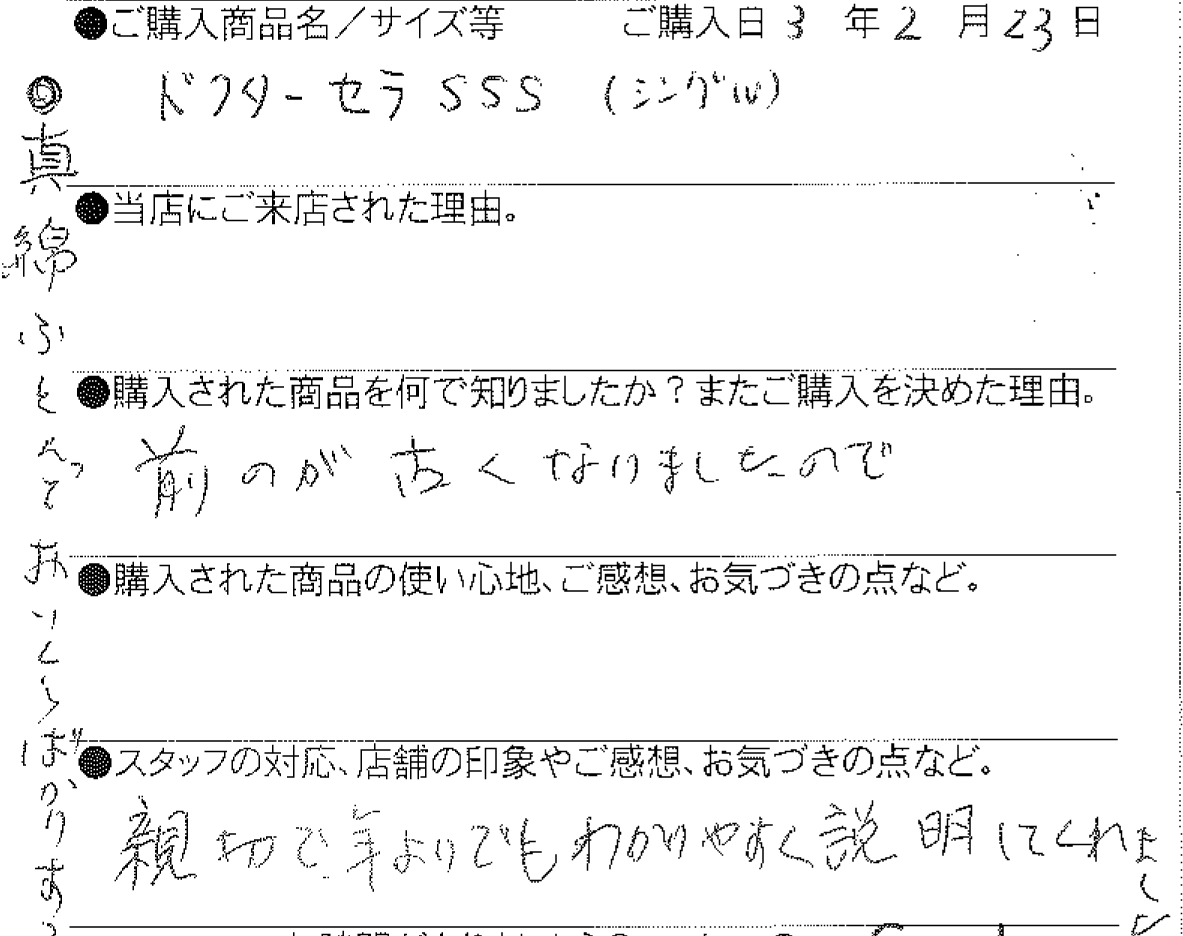 ●ご購入商品名／サイズ等　ご購入日 3 年 2 月 23 日
ドクターセラ SSS (シングル)
●当店にご来店された理由。
●購入された商品を何で知りましたか？またご購入を決めた理由。
前のが古くなりましたので
●購入された商品の使い心地、ご感想、お気づきの点など。
●スタッフの対応、店舗の印象やご感想、お気づきの点など。
親切で年よりでもわかりやすく説明してくれました
◎真綿ふとんって
おいくらばかりする